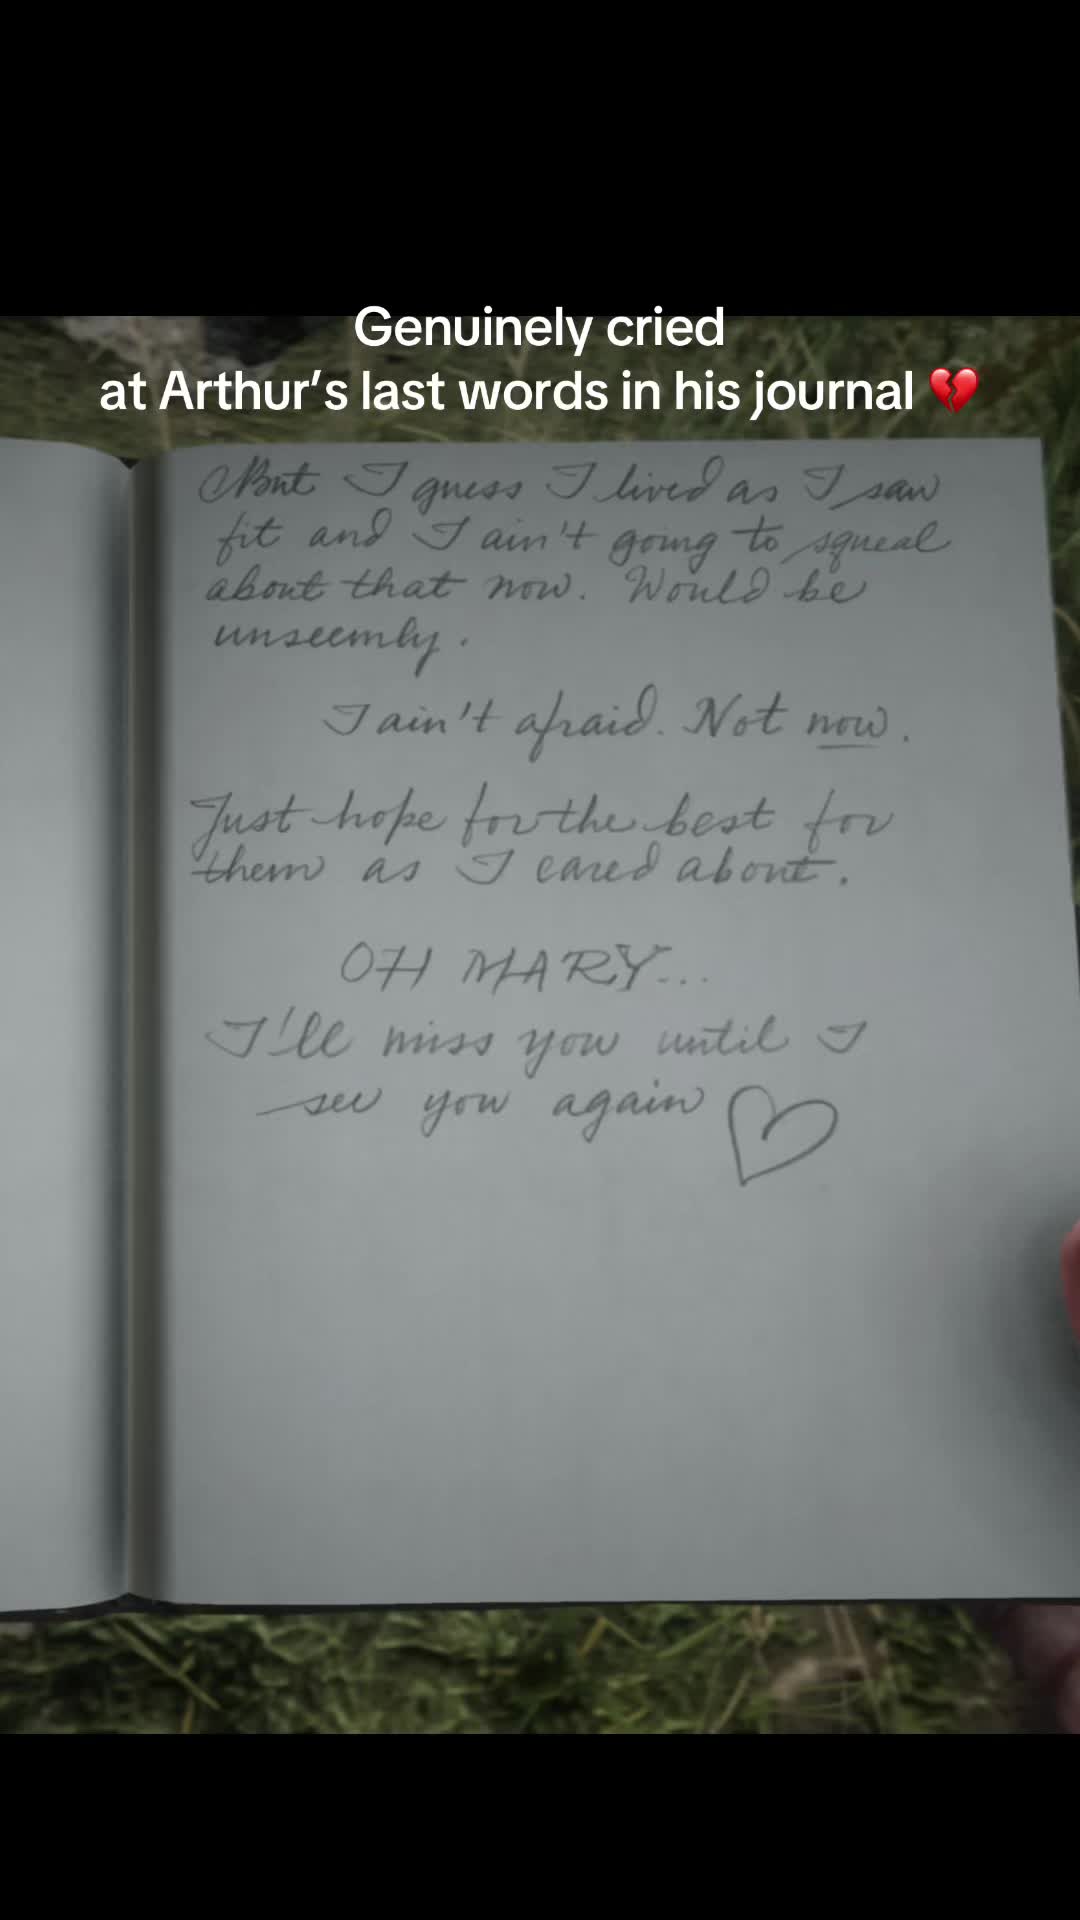 Genuinely cried
at Arthur’s last words in his journal 💔
But I guess I lived as I saw
fit and I ain't going to squeal
about that now. Would be
unseemly.
I ain't afraid. Not now.
Just hope for the best for
them as I cared about.
OH MARY...
I'll miss you until I
see you again ♡